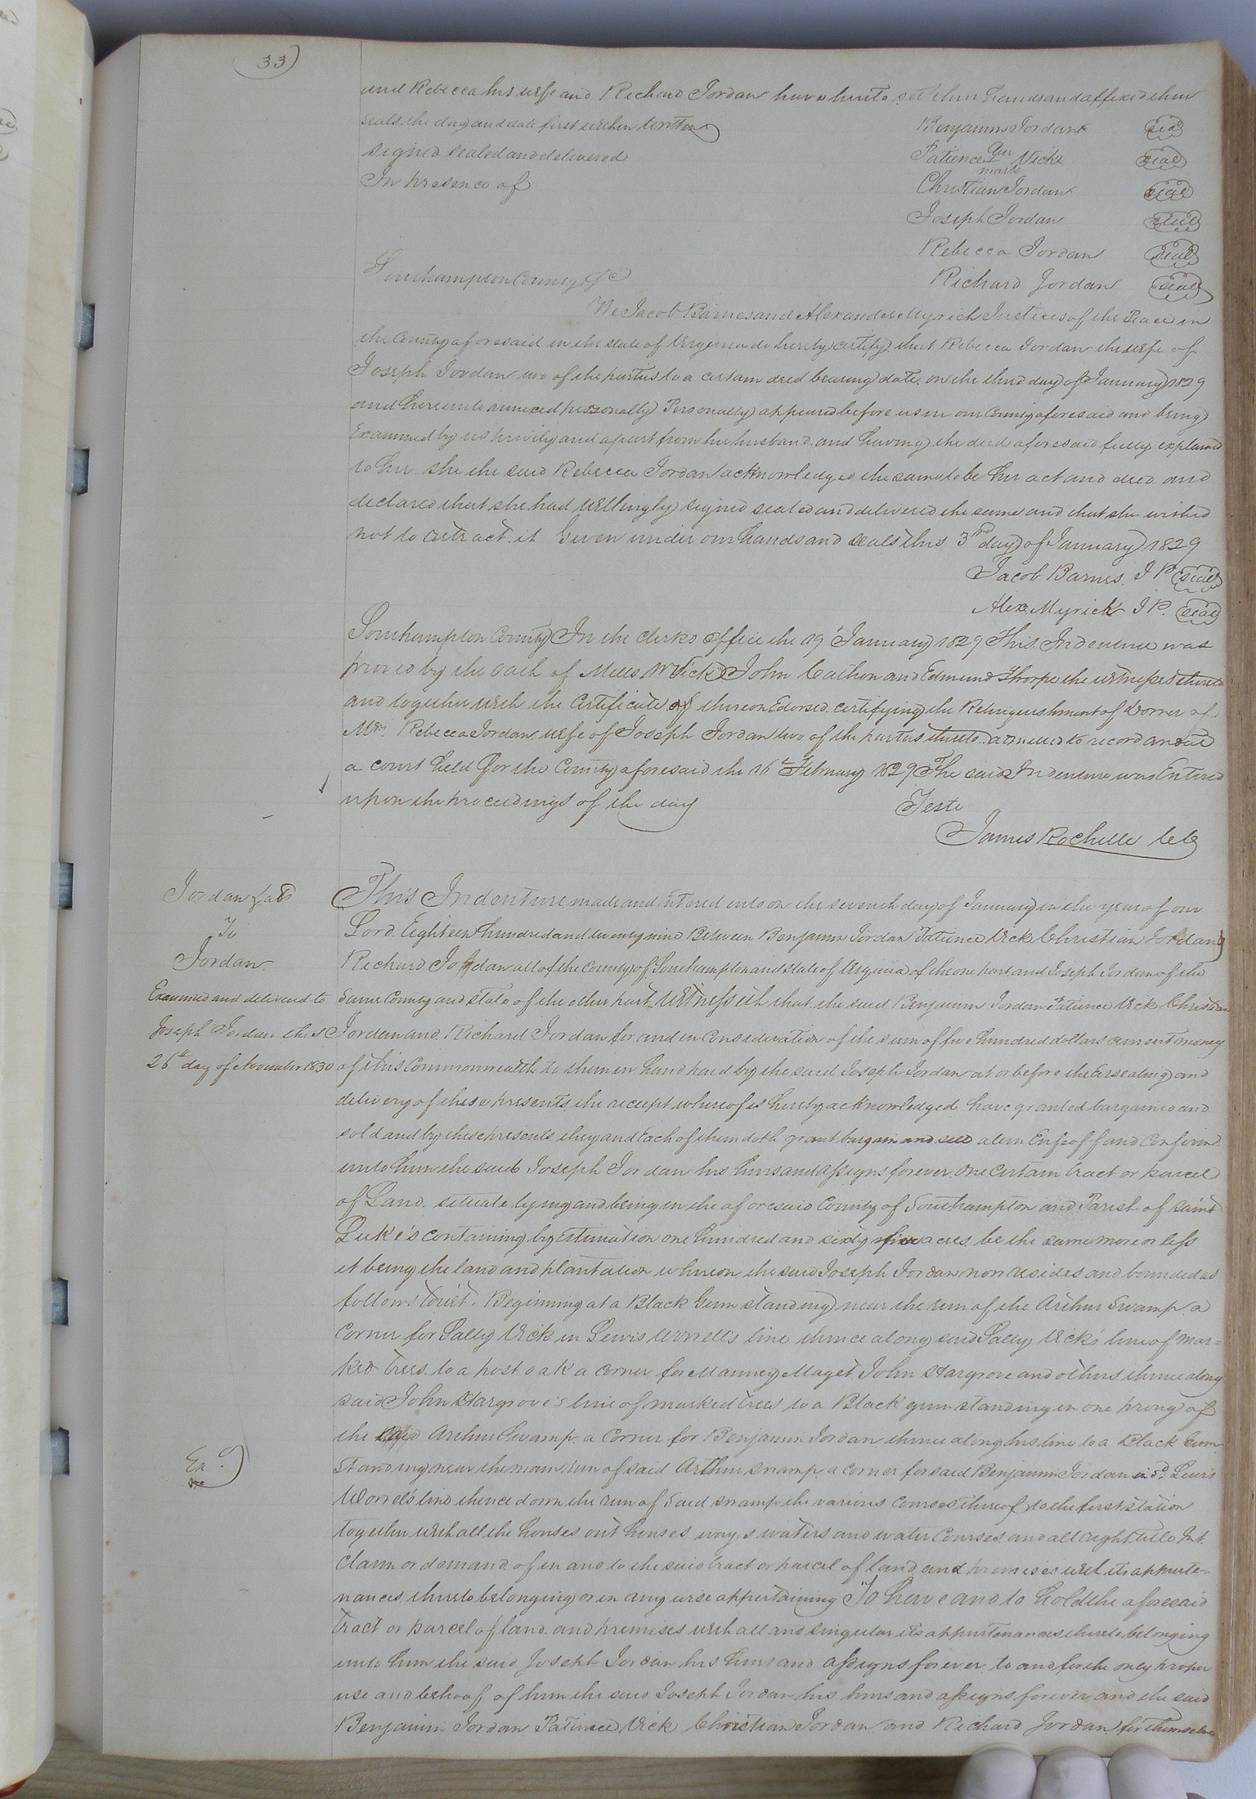 33
and Rebecca his wife and Richard Jordan have hunto set their hands and affixed their
seals the day and date first within written
Benjamin Jordan seal
signed sealed and delivered
Patience her mark Vick seal
In presence of
Christian Jordan seal
Joseph Jordan seal
Rebecca Jordan seal
Southampton County Sc
Richard Jordan seal
We Jacob Barnes and Alexander Myrick Justices of the Peace in
the County aforesaid in the state of Virginia do hereby certify that Rebecca Jordan the wife of
Joseph Jordan two of the parties to a certain deed bearing date on the third day of January 1829
and hereunto annexed personally Personally appeared before us in our County aforesaid and being
Examined by us privily and apart from her husband and having the deed aforesaid fully explained
to her she the said Rebecca Jordan acknowledged the same to be her act and deed and
declared that she had willingly signed sealed and delivered the same and that she wished
not to retract it Given under our hands and seals this 3rd day of January 1829
Jacob Barnes J P seal
Alex Myrick J P. seal
Southampton County In the clerks office the 19 January 1829 This Indenture was
proved by the oath of Mills W Vick John Cathon and Edmund Thorpe the witnesses thereto
and together with the Certificate of thereon Edorsed certifying the Relinquishment of Dower of
Mrs. Rebecca Jordan wife of Joseph Jordan two of the parties thereto admitted to record and at
a court held for the County aforesaid the 16th February 1829 The said Indenture was Entered
upon the proceedings of the day
Teste
James Rochelle Clk
Jordan &als
To
Jordan
Examined and delivered to
Joseph Jordan this
26th day of November 1830
This Indenture made and Entered into on the seventh day of January in the year of our
Lord Eighteen hundred and twenty nine Between Benjamin Jordan Patience Vick Christian Jordan &
Richard Jordan all of the County of Southampton and state of Virginia of the one part and Joseph Jordan of the
same County and state of the other part Witnesseth that the said Benjamin Jordan Patience Vick Christian
Jordan and Richard Jordan for and in Consideration of the sum of five hundred dollars current money
of this Commonwealth to them in hand paid by the said Joseph Jordan at or before the Ensealing and
delivery of these presents the receipt whereof is hereby acknowledged have granted bargained and
sold and by these presents they and Each of them doth grant bargain and sell alien Enfeoff and Confirm
unto him the said Joseph Jordan his heirs and assigns forever one certain tract or parcel
of Land situate lying and being in the aforesaid County of Southampton and Parish of saint
Luke's containing by Estimation one hundred and sixty five acres be the same more or less
it being the land and plantation whereon the said Joseph Jordan now resides and bounded as
follows towit. Beginning at a Black Gum standing near the run of the Arthur Swamp a
Corner for Sally Vick in Lewis Worrell's line thence along said Sally Vicks line of mar=
ked trees to a post oak a corner for Manney Maget John Hargrove and others thence along
said John Hargrove's line of marked trees to a Black gum standing in one prong of
the Arthur Swamp a Corner for Benjamin Jordan thence along his line to a Black Gum
Exd
Standing near the main run of said Arthur swamp a corner for said Benjamin Jordan in sd. Lewis
Worrel's line thence down the run of said swamp the various courses thereof to the first station
together with all the houses out houses ways waters and water Courses and all right title Int.
Claim or demand of in and to the said tract or parcel of land and premises with its apperte-
nances thereto belonging or in any wise appertaining To have and to hold the aforesaid
tract or parcel of land and premises with all and singular its appurtenances thereto belonging
unto him the said Joseph Jordan his heirs and assigns forever to and for the only proper
use and behoof of him the said Joseph Jordan his heirs and assigns forever and the said
Benjamin Jordan Patience Vick Christian Jordan and Richard Jordan for themselves